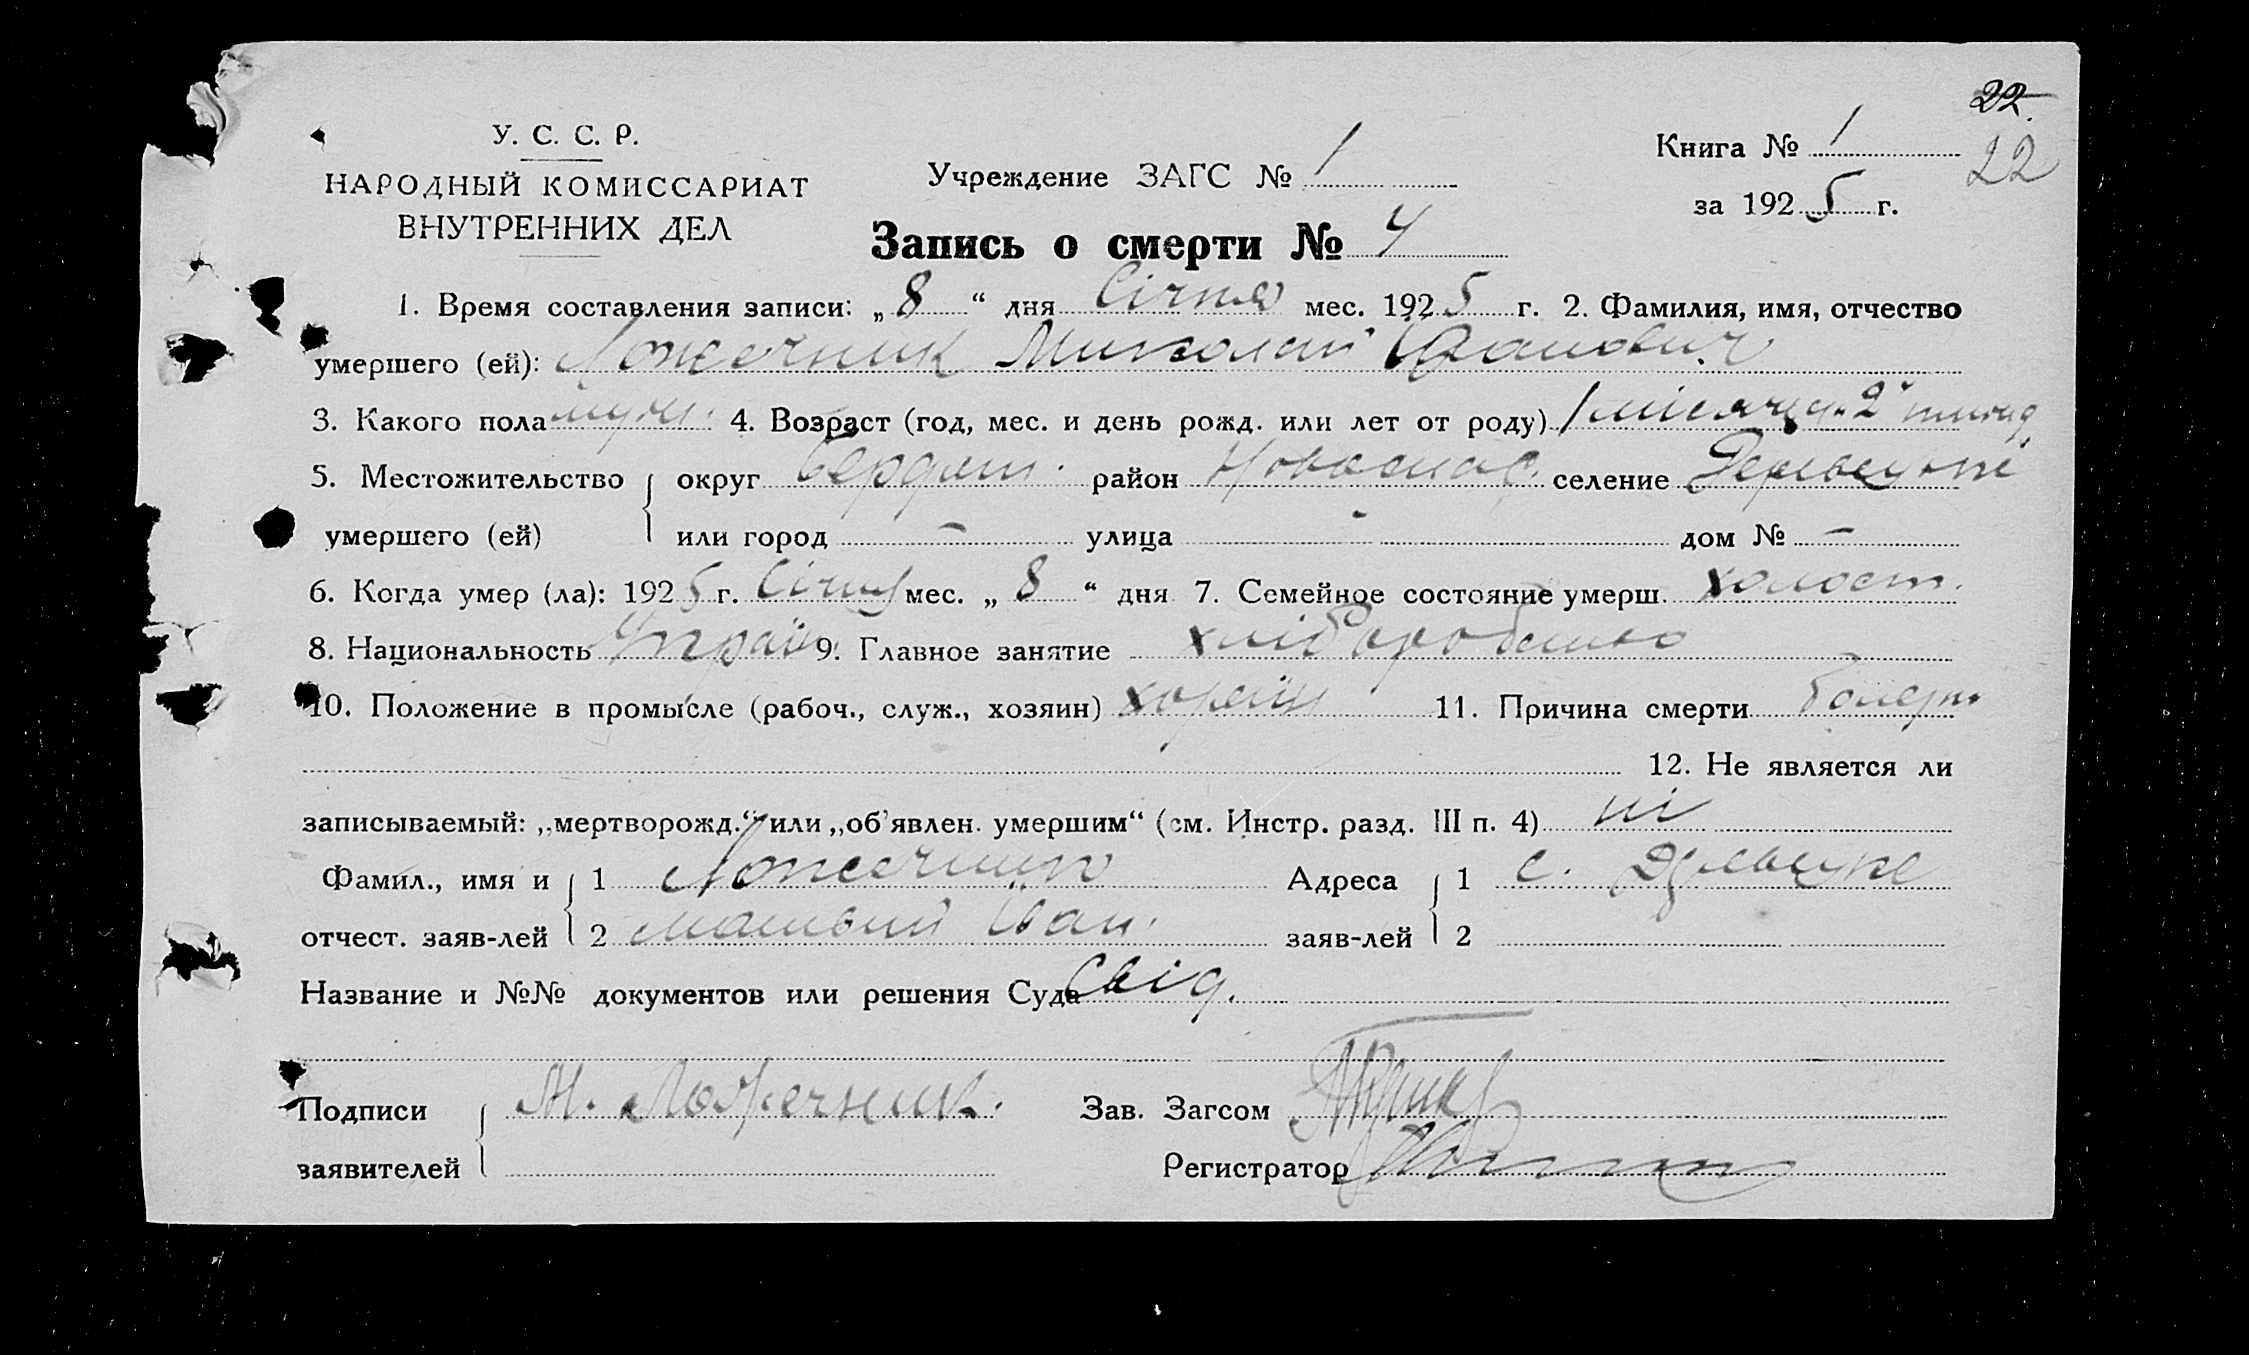 22.
22
У. С. С. Р.
НАРОДНЫЙ КОМИССАРИАТ
ВНУТРЕННИХ ДЕЛ
Учреждение ЗАГС № 1
Книга № 1
за 1925 г.
Запись о смерти № 4
1. Время составления записи: „8“ дня Січня мес. 1925 г. 2. Фамилия, имя, отчество
умершего (ей): Ложечник Миколай Иванович
3. Какого пола муж. 4. Возраст (год, мес. и день рожд. или лет от роду) 1 місяць 2
5. Местожительство округ Бердян. район Новоспас. селение
умершего (ей) или город – улица - дом № –
6. Когда умер (ла): 1925 г. Січня мес. „8“ дня 7. Семейное состояние умерш. холост.
8. Национальность Украін. 9. Главное занятие хліборобство
10. Положение в промысле (рабоч., служ., хозяин) 11. Причина смерти
12. Не является ли
записываемый: „мертворожд.“ или „об’явлен. умершим“ (см. Инстр. разд. III п. 4) ні
Фамил., имя и 1 Ложечник Адреса 1 с.
отчест. заяв-лей 2 Матвий Іван. заяв-лей 2
Название и №№ документов или решения Суда Свід.
Подписи М. Ложечник. Зав. Загсом
заявителей Регистратор